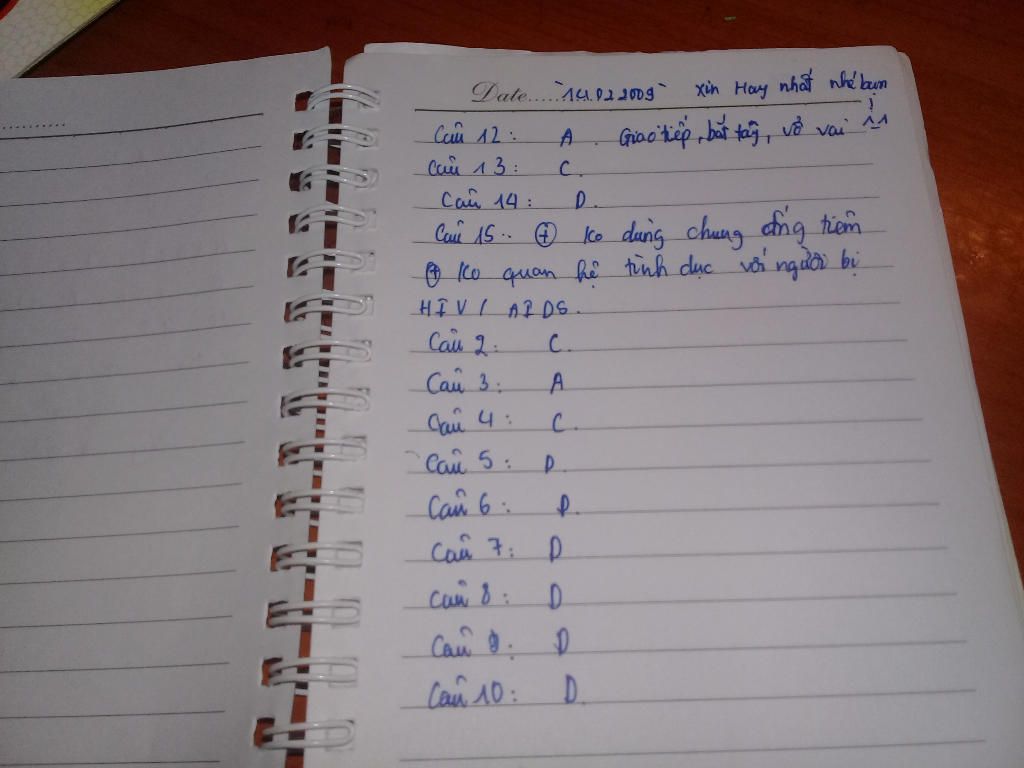 Date..... 14.02 2009 Xin Hay nhất nhé bạn ! ^-^
Câu 12: A. Giao tiếp, bắt tay, vỗ vai
Câu 13: C.
Câu 14: D.
Câu 15.. + Ko dùng chung ống tiêm
+ Ko quan hệ tình dục với người bị
HIV / AIDS.
Câu 2: C.
Câu 3: A
Câu 4: C.
Câu 5: D.
Câu 6: D.
Câu 7: D
Câu 8: D
Câu 9: D
Câu 10: D.